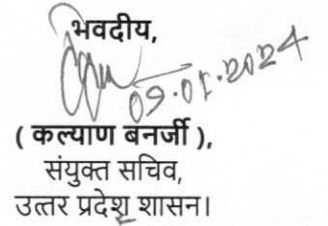 भवदीय,
09.01.2024
( कल्याण बनर्जी ),
संयुक्त सचिव,
उत्तर प्रदेश शासन।